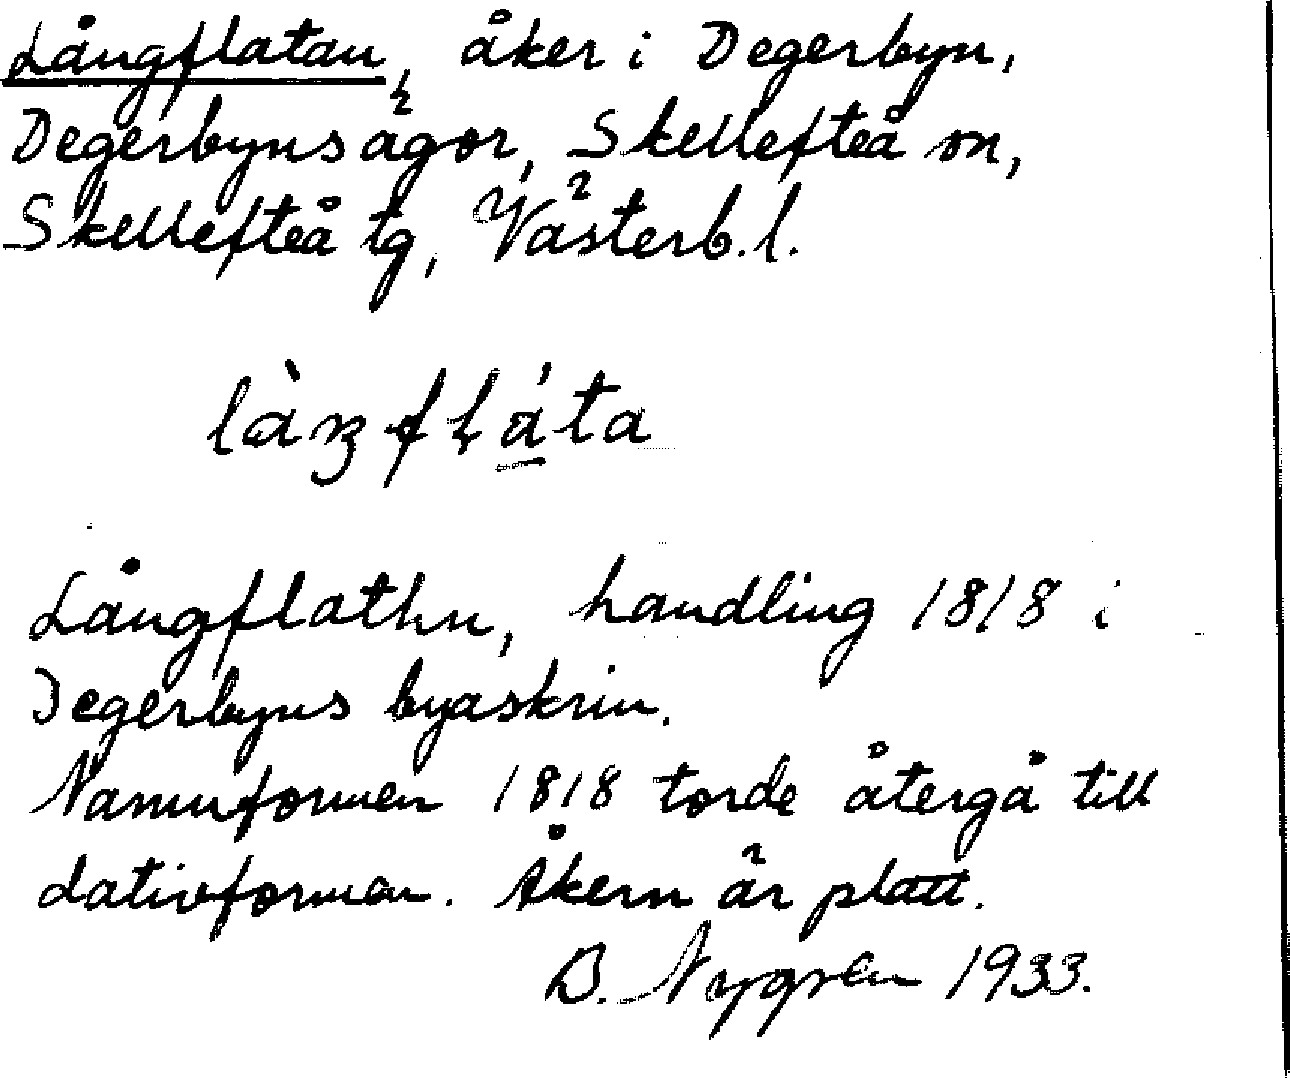 Långflatan, åker i Degerbyn,
Degerbyns ägor, Skellefteå sn,
Skellefteå tg, Västerb. l.
Långflathn, handling 1818 i
Degerbyns byaskrin.
Namnformen 1818 torde återgå till
dativformen. Åkern är platt.
B. Nygren 1933.